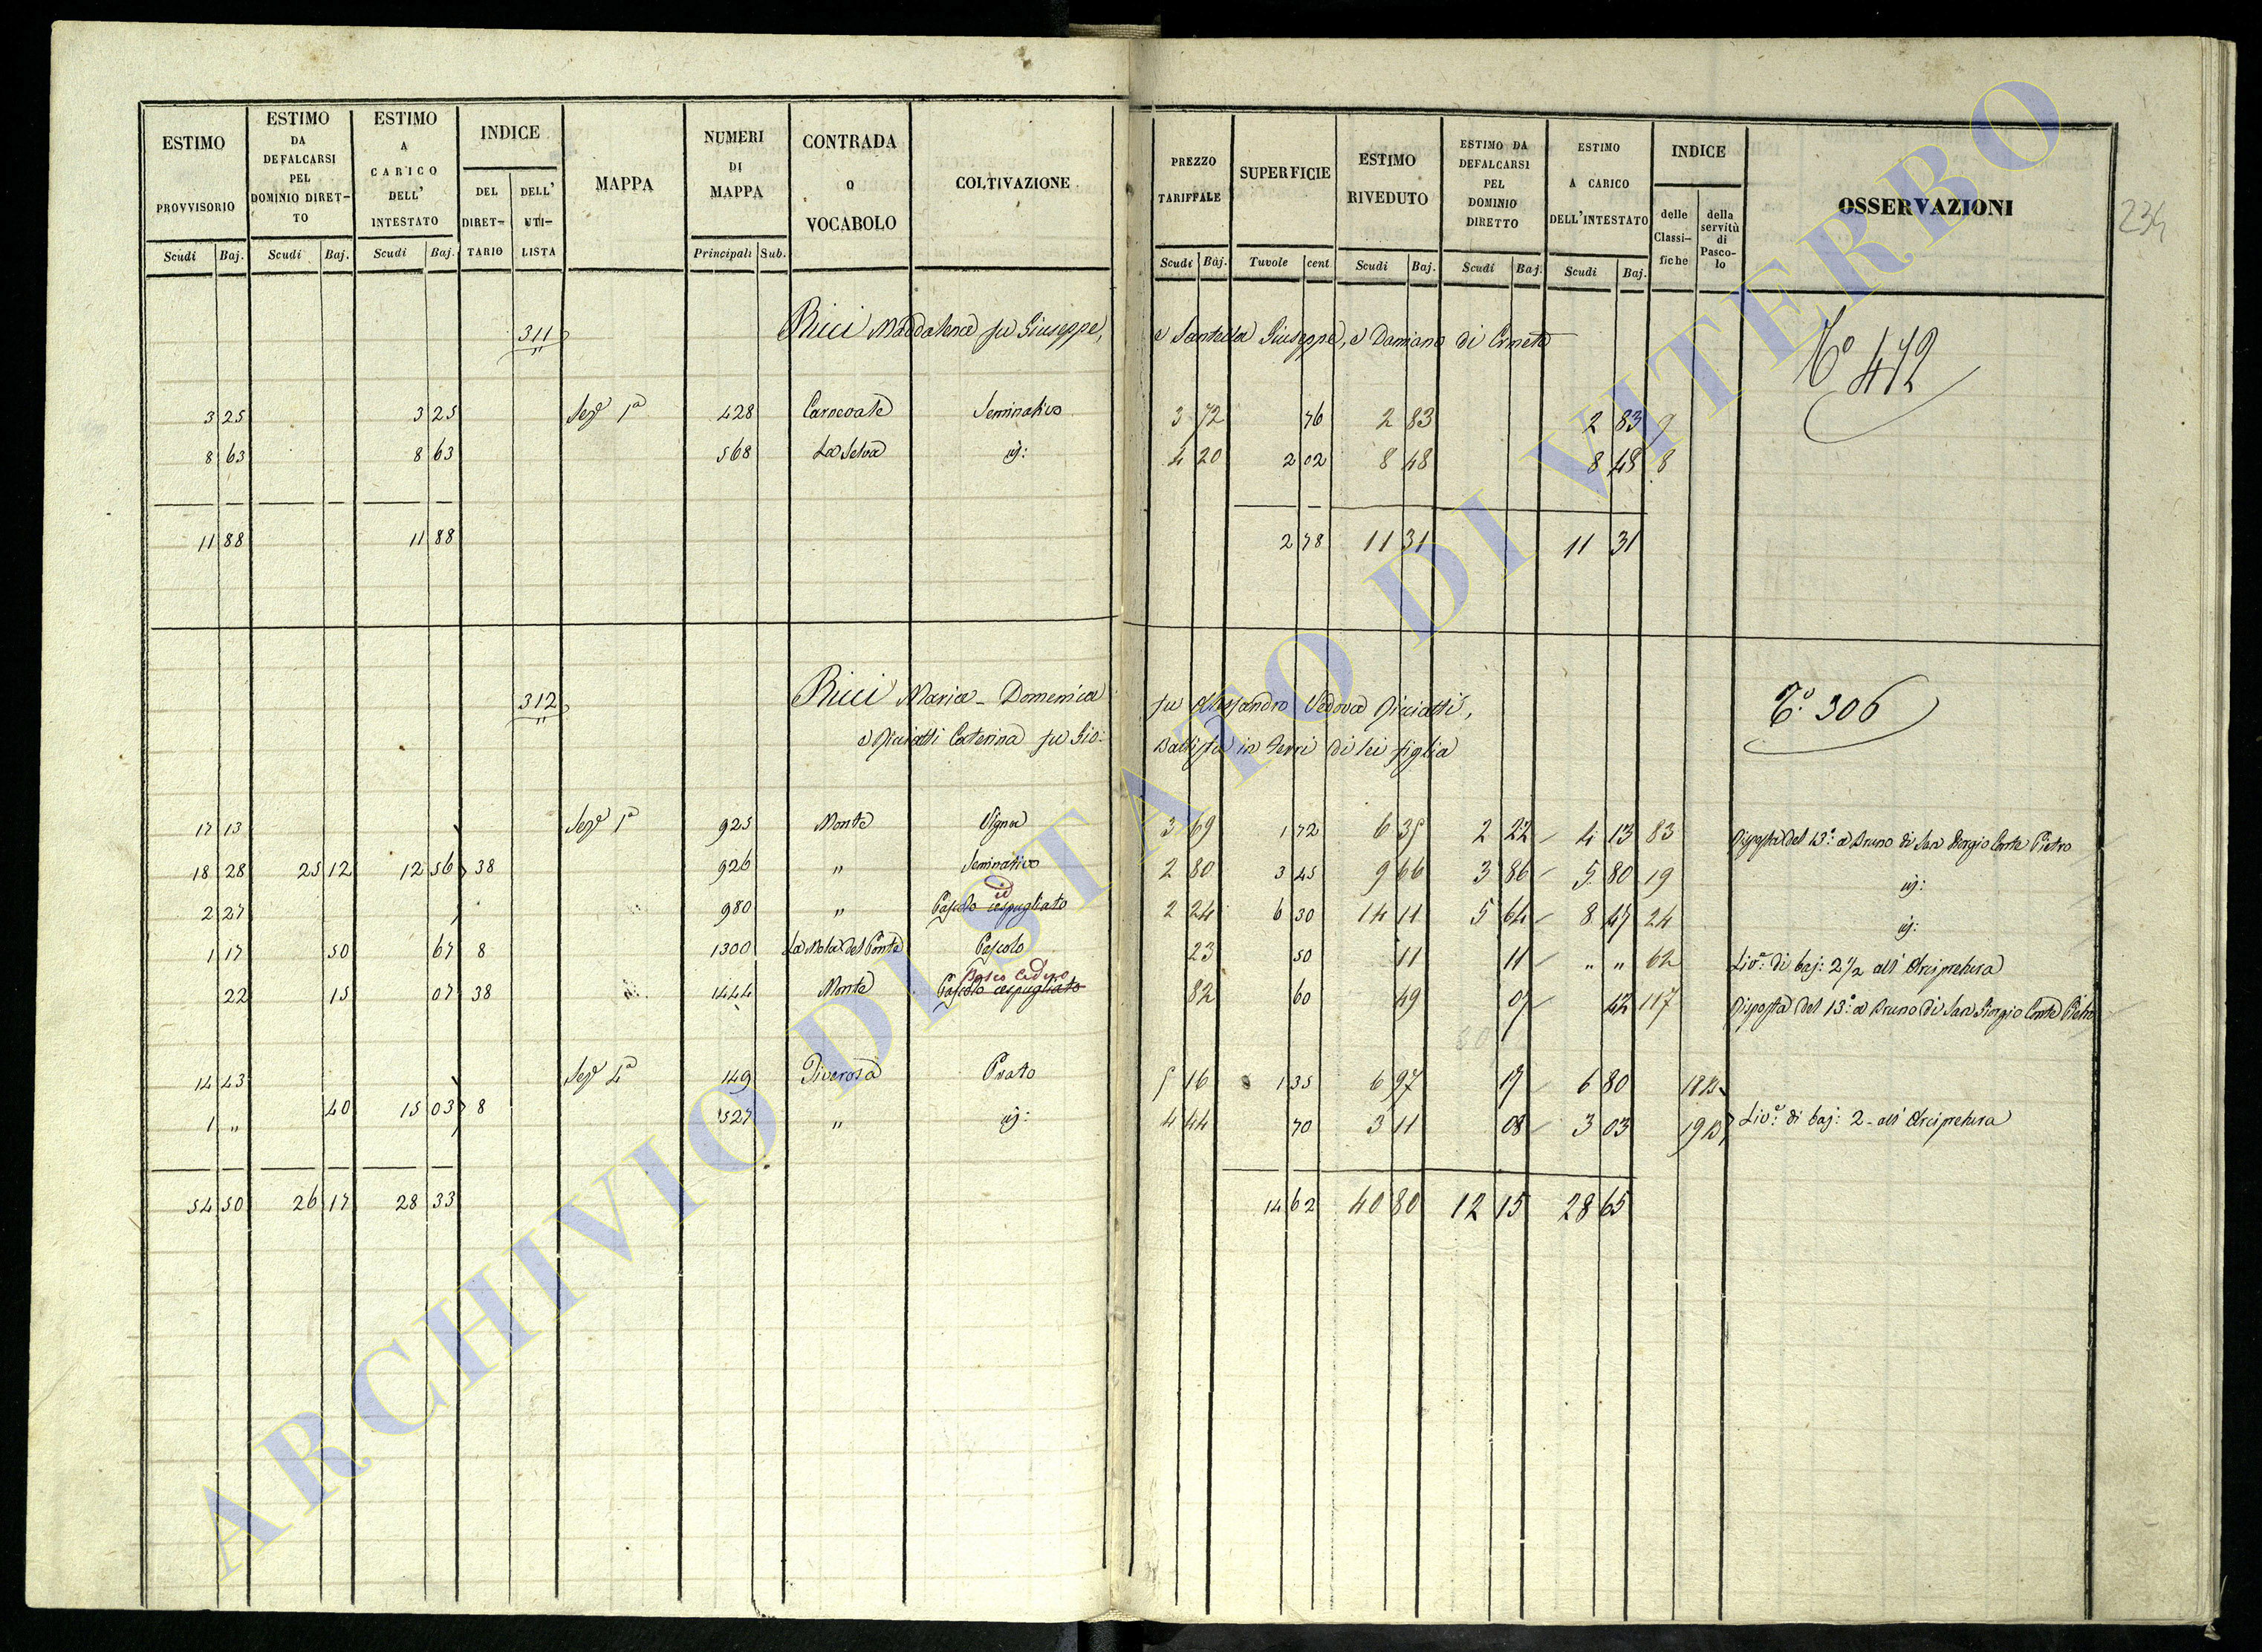 ESTIMO PROVVISORIO Scudi Baj.
ESTIMO DA DEFALCARSI PEL DOMINIO DIRETTO Scudi Baj.
ESTIMO A CARICO DELL' INTESTATO Scudi Baj.
INDICE DEL DIRETTARIO DELL' UTILISTA
MAPPA
NUMERI DI MAPPA Principali Sub.
CONTRADA O VOCABOLO
COLTIVAZIONE
PREZZO TARIFFALE Scudi Baj.
SUPERFICIE Tavole cent.
ESTIMO RIVEDUTO Scudi Baj.
ESTIMO DA DEFALCARSI PEL DOMINIO DIRETTO Scudi Baj.
ESTIMO A CARICO DELL'INTESTATO Scudi Baj.
INDICE delle Classifiche della servitù di Pascolo
OSSERVAZIONI
234
311 Ricci Maddalena fu Giuseppe, e Santella Giuseppe, e Damiano di Corneto To 472
3 25 3 25 Sezе 1a 428 Carnevale Seminativo 3 72 76 2 83 2 83 9
8 63 8 63 568 La Selva id: 4 20 2 02 8 48 8 48 8
11 88 11 88 2 78 11 31 11 31
312 Ricci Maria-Domenica fu Alessandro Vedova To. 306
Caterina fu Gio: Battista in di lei figlia
17 13 Seze 1a 925 Monte Vigna 3 69 1 72 6 35 2 22 4 13 83 Risposta del 13o. a Bruno di San Giorgio Conte Pietro
18 28 25 12 12 56 38 926 " Seminativo 2 80 3 45 9 66 3 86 5 80 19 id:
2 27 980 " Pascolo cespugliato id 2 24 6 30 14 11 5 64 8 47 24 id:
1 17 50 67 8 1300 La Mola del Ponte Pascolo 23 50 11 11 " " 62 Livo: di baj: 2 1/2 all' Arcipretura
22 15 07 38 1444 Monte Pascolo cespugliato Bosco Ceduo 82 60 49 07 42 117 Risposta del 13o: a Bruno di San Giorgio Conte Pietro
14 43 Seze 4a 149 Piverosa Prato 5 16 1 35 6 97 17 6 80 18 B
1 " 40 15 03 8 527 " id: 4 44 70 3 11 08 3 03 19 B Livo: di baj: 2 - all' Arcipretura
54 50 26 17 28 33 14 62 40 80 12 15 28 65
ARCHIVIO DI STATO DI VITERBO